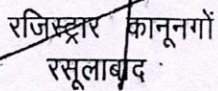 रजिस्ट्रार कानूनगों
रसूलाबाद